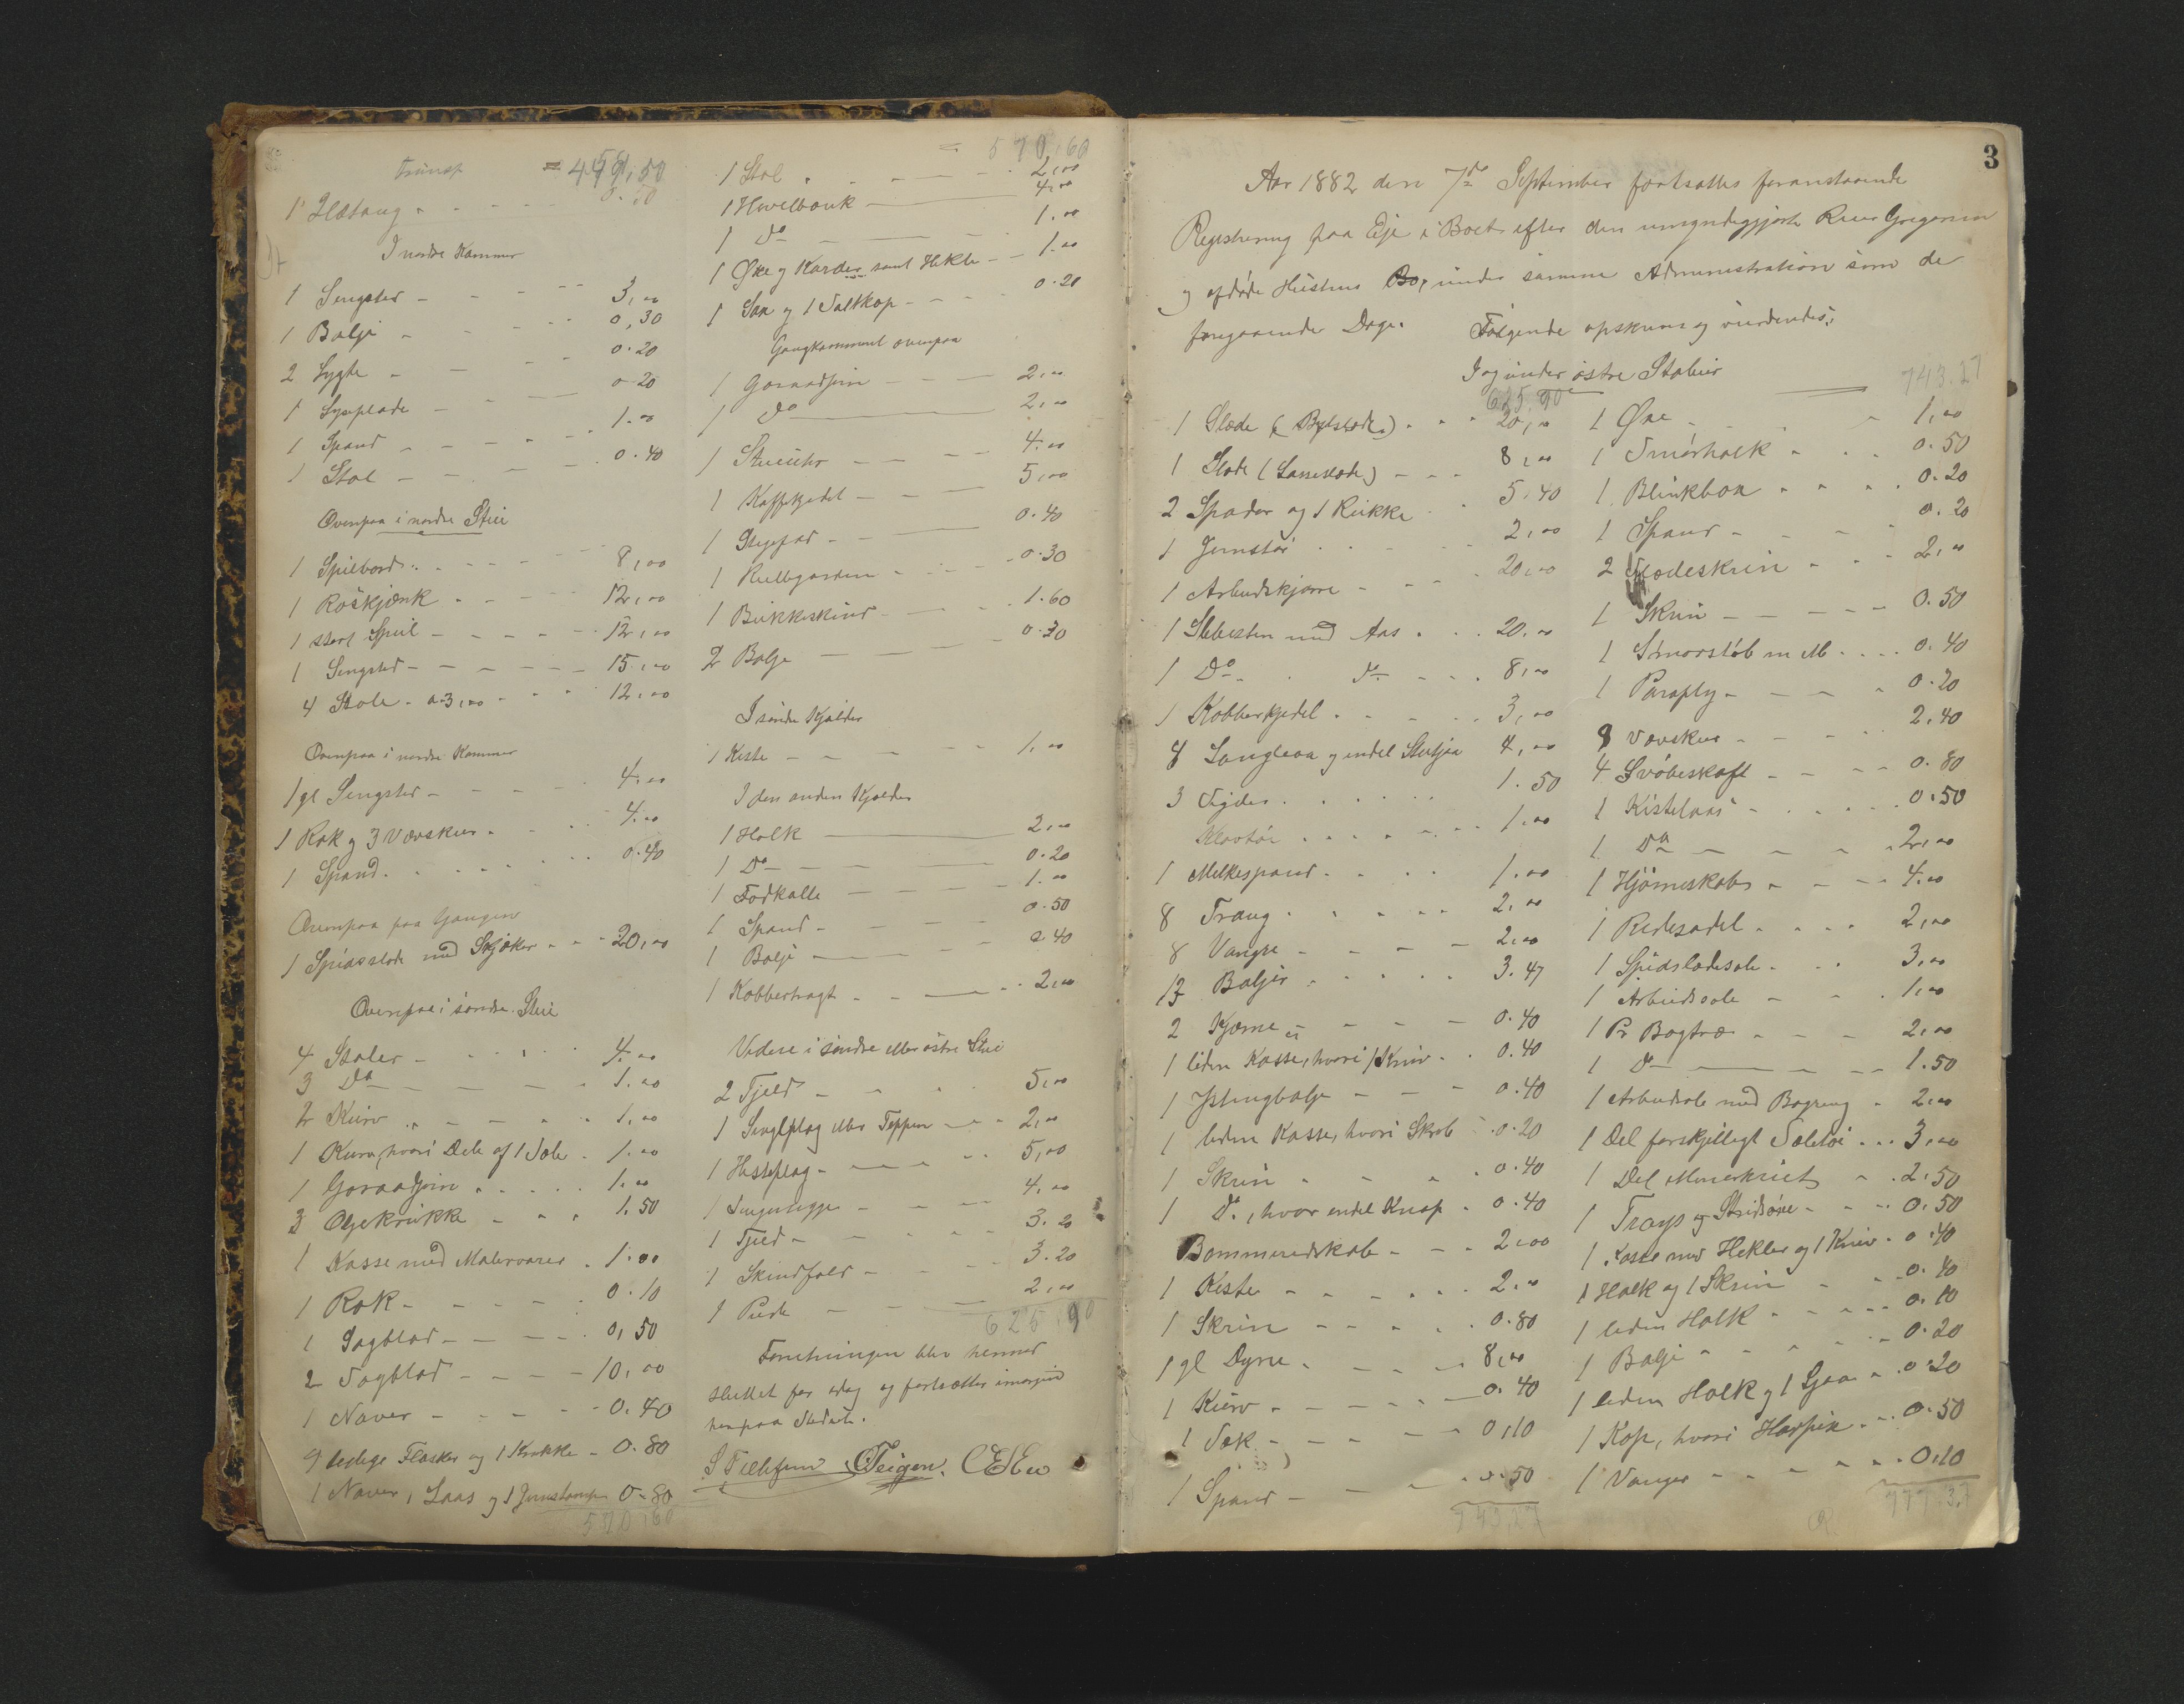 Transp = 459,50
1 Ildtang - - - 0.50
I nordre Kammer
1 Sengsted - - - 3,00
1 Balje - - - 0,30
2 Lygte - - - 0.20
1 Lyseplade - - 0.20
1 Spand - - - 1.00
1 Stol - - - 0.40
Ovenpaa i nordre Stue
1 Spilbord - - - 8,00
1 Roskjænk - - - 12,00
1 stort Speil - - - 12,00
1 Sengsted - - - 15,00
4 Stole - a 3,00 - - 12,00
Ovenpaa i nordre Kammer
1 gl Sengsted - - - 4,00
1 Rok og 3 Vævskeer - - 4.00
1 Spand - - - 0.40
Ovenpaa paa Gangen
1 Spidsslæde med Skjæker - - 20,00
Ovenpaa i søndre Stue
4 Stoler - - - 4.00
3 Do - - - 1.00
2 Kurv - - - 1,00
1 Kurv, hvori Dele af 1 Sæle - 1.00
1 Goraadjern - - - 1.00
3 Oljekrukke - - - 1.50
1 Kasse med Malervarer - 1.00
1 Rok - - - 0.10
1 Sagblad - - - 0,50
2 Sagblad - - - 10,00
1 Naver - - - 0.40
9 ledige Flasker og 1 Krukke - 0.80
1 Naver, 1 Laas og 1 Jernstamper 0.80
570,60
= 570,60
1 Stol - - - 2,00
1 Høvelbænk - 4,00
1 Do - - 1.00
1 Øxe og Karder samt Hekle - - 1.00
1 Sax og 1 Saltkop - - - 0.20
Gangkammeret ovenpaa
1 Goraadjern - - - 2,00
1 Do - 2,00
1 Stueuhr - - - 4.00
1 Kaffekjedel - - - 5,00
1 Stegefad - - - 0.40
1 Rullegardin - - - 0.30
1 Bukkeskind - - - 1.60
2 Balje - - - 0.30
I søndre Kjælder
1 Kiste - - - 1,00
I den anden Kjælder
1 Holk - 2,00
1 Do - - 0.20
1 Fodkalle - - - 1.00
1 Spand - - - 0.50
1 Balje - - 0.40
1 Kobbertragt - - - 2,00
Videre i søndre eller østre Stue
2 Fjeld - - - 5,00
1 Sengeplag eller Teppen - - 2,00
1 Hesteplag - - - 5,00
1 Sengeteppe - - - 4,00
1 Fjeld - - - 3.20
1 Skindfeld - - - 3.20
1 Pude - - - 2,00
625,90
Forretningen blev hermed
sluttet for idag og fortsættes imorgen
her paa Stedet.
S Tellefsen OTeigen.
3
Aar 1882 den 7de September fortsattes foranstaaende
Registrering paa Eje i Boet efter den umyndiggjorte Reier Gregersen
og afdøde Hustrus Bo, under samme Administration som de
foregaaende Dage. Følgende opskreves og vurderedes:
I og under østre Stabur
625,90
1 Slæde (Bytslæde) - - - 20,00
1 Slæde (Lasseslæde) - - - 8,00
2 Spader og 1 Krukke - 5,40
1 Jernstør - - - 2,00
1 Arbeidskjærre - - - 20,00
1 Slibesten med Aas - - - 20.00
1 Do - do - - - 8,00
1 Kobberkjedel - - - 3,00
8 Langleaa og endel Stutjaa 4,00
3 Sigder - - - 1.50
Kløvtøi - - - 1.00
1 Melkespand - - - 1.00
8 Traug - - - 2,00
8 Vangre - - - 2,00
13 Baljer - - - 3.47
2 Kjærne - - - 0.40
1 liden Kasse, hvori 1 Kniv - 0.40
1 Ystingbalje - - - 0.40
1 liden Kasse, hvori Skrab - 0.20
1 Skrin - - - 0.40
1 Do, hvor endel Knap - 0.40
Bommeredskab - - - 2,00
1 Kiste - - - 2,00
1 Skrin - - - 0.80
1 gl Dyne - - - 8,00
1 Kurv - - - 0.40
1 Sæk - - - 0,10
1 Spand - - - 0.50
743,27
743.27
1 Øxe - - 1,00
1 Smørholk - - - 0.50
1 Blinkbox - - - 0.20
1 Spand - - - 0.20
2 Flødeskrin - - - 2,00
1 Skrin - - - 0.50
1 Smørstøb m M - - - 0.40
1 Paraply - - - 0.20
8 Vævskeer - - - 2,40
4 Svøbeskaft - - - 0.80
1 Kistelaas - - - 0.50
1 Do - - - 2,00
1 Hjørneskab - - - 4.00
1 Ridesadel - - - 2,00
1 Spidslædesæle - - 3,00
1 Arbeidssæle - - 1,00
1 Pr Bogtræ - - - 2,00
1 Do - - - 1.50
1 Arbeidssæle med Bogreng - 2,00
1 Del forskjelligt Seletøi - - - 3,00
1 Del - 2,50
1 Traug - 0.50
1 Kasse med Hekler og 1 Kniv - 0.40
1 Holk og 1 Skrin - - - 0.40
1 liden Holk - - - 0.10
1 Balje - - - 0.20
1 liden Holk og 1 Ljaa - 0.20
1 Kop, hvori Harpix - - 0.50
1 Vanger - - - 0,10
777,37